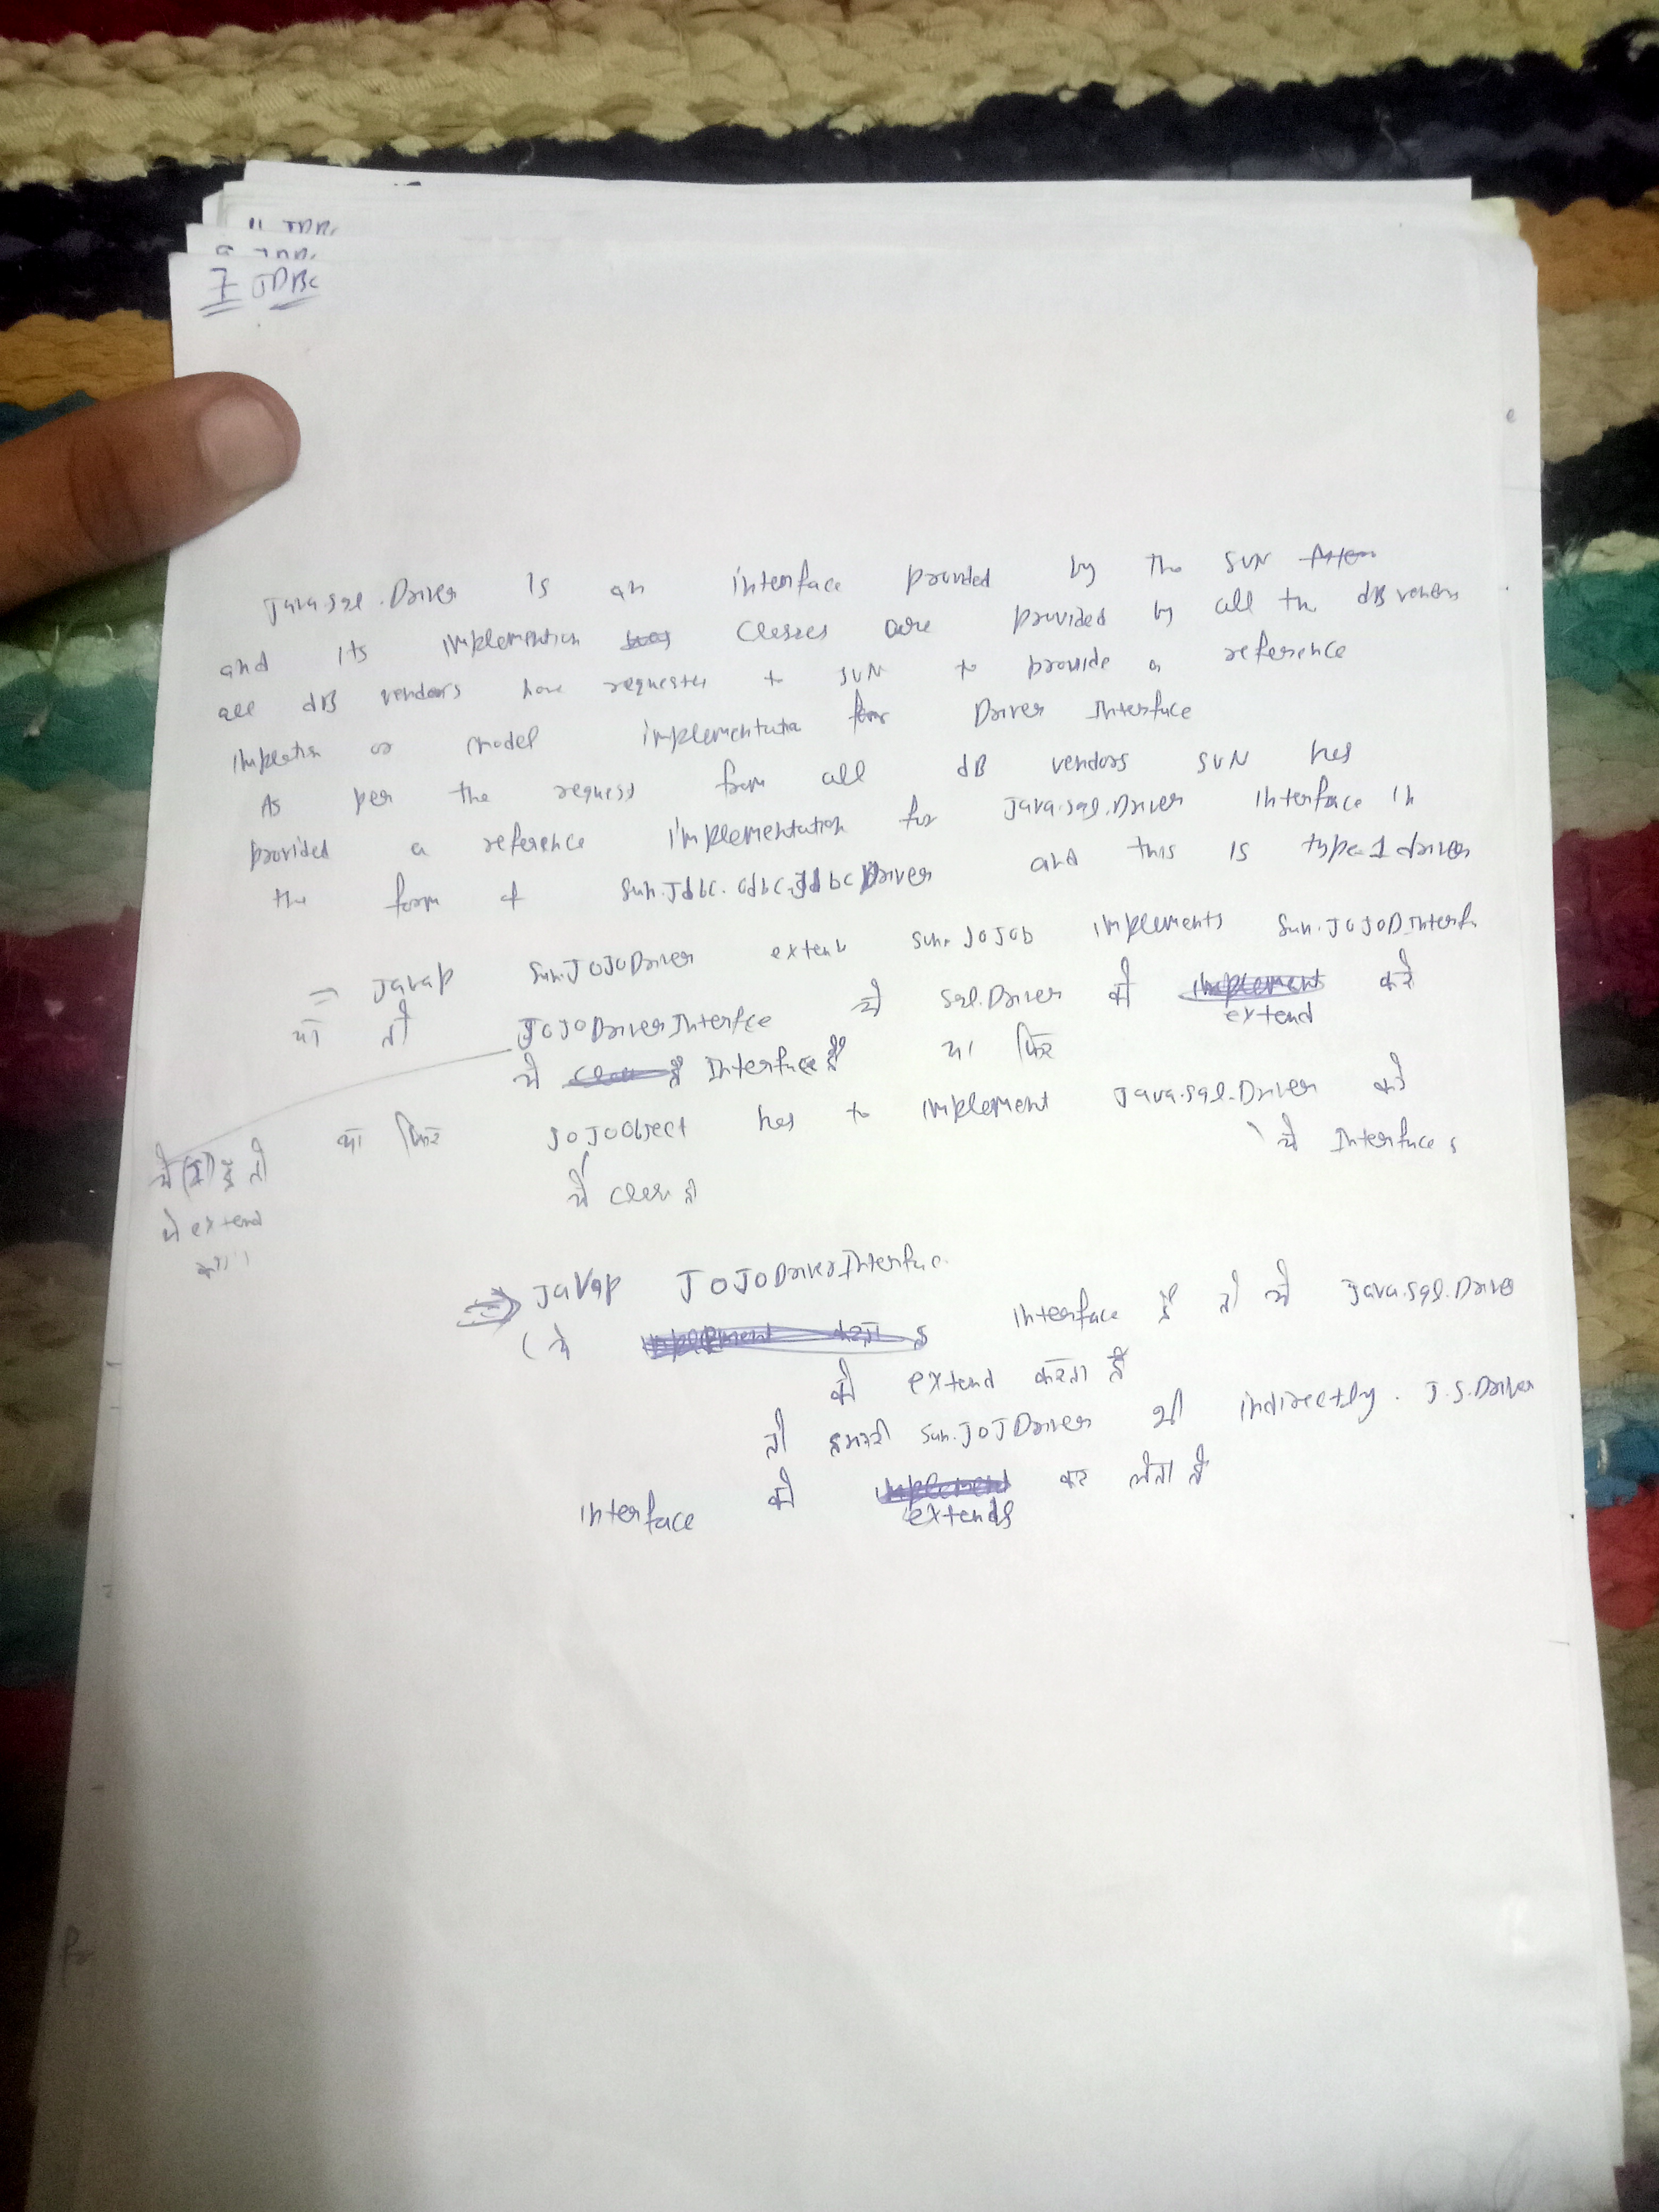 7 JDBC
java.sql.Driver is an interface provided by the SUN
and its implemention classes are provided by all the dB venders
all dB vendors have requester to SUN to provide a reference
or model implementation for Driver Interface
As per the request from all dB vendors SUN has
provided a reference implementation for java.sql.Driver interface in
the form of Sun.Jdbc.odbc.JdbcDriver and this is type-1 driver
= Javap Sun.JOJODriver extend Sun.JOJOb implements Sun.JOJODInterf
या तो JOJODriverInterfce ये sql.Driver को extend करे
ये Interface है या फिर
या फिर JOJOObject has to implement java.sql.Driver करे
ये तो ये Interface
ये extend
⇒ Javap JOJODriverInterfac
(ये interface है तो ये java.sql.Driver
को extend करता है
तो हमारी Sun.JOJDriver भी indirectly. J.S.Driver
interface को extends कर लेता है